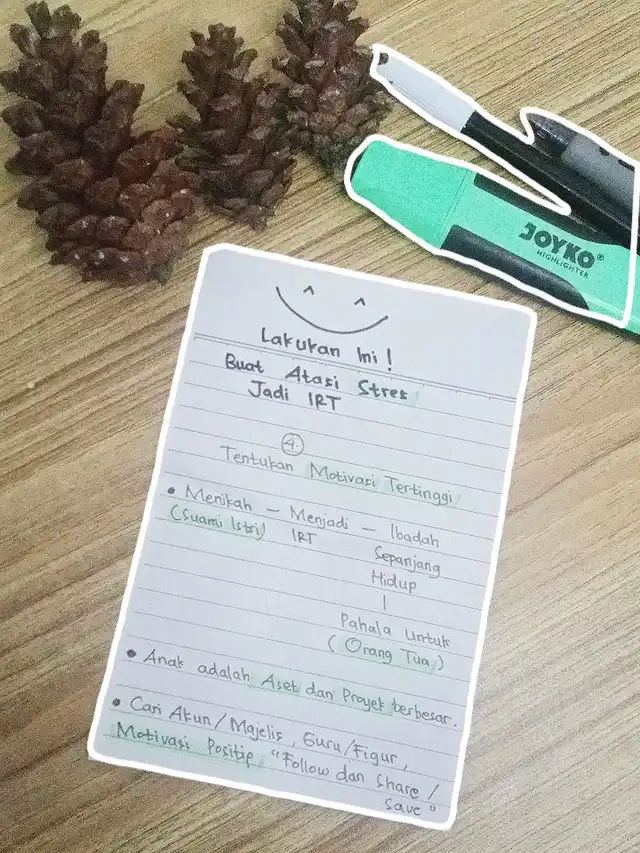 JOYKO®
HIGHLIGHTER
Lakukan Ini!
Buat Atasi Stres
Jadi IRT
4.
Tentukan Motivasi Tertinggi
• Menikah – Menjadi – Ibadah
(Suami Istri) IRT Sepanjang
Hidup
|
Pahala Untuk
(Orang Tua)
• Anak adalah Aset dan Proyek terbesar.
• Cari Akun/Majelis, Guru/Figur,
Motivasi Positip, "Follow dan Share/
Save"